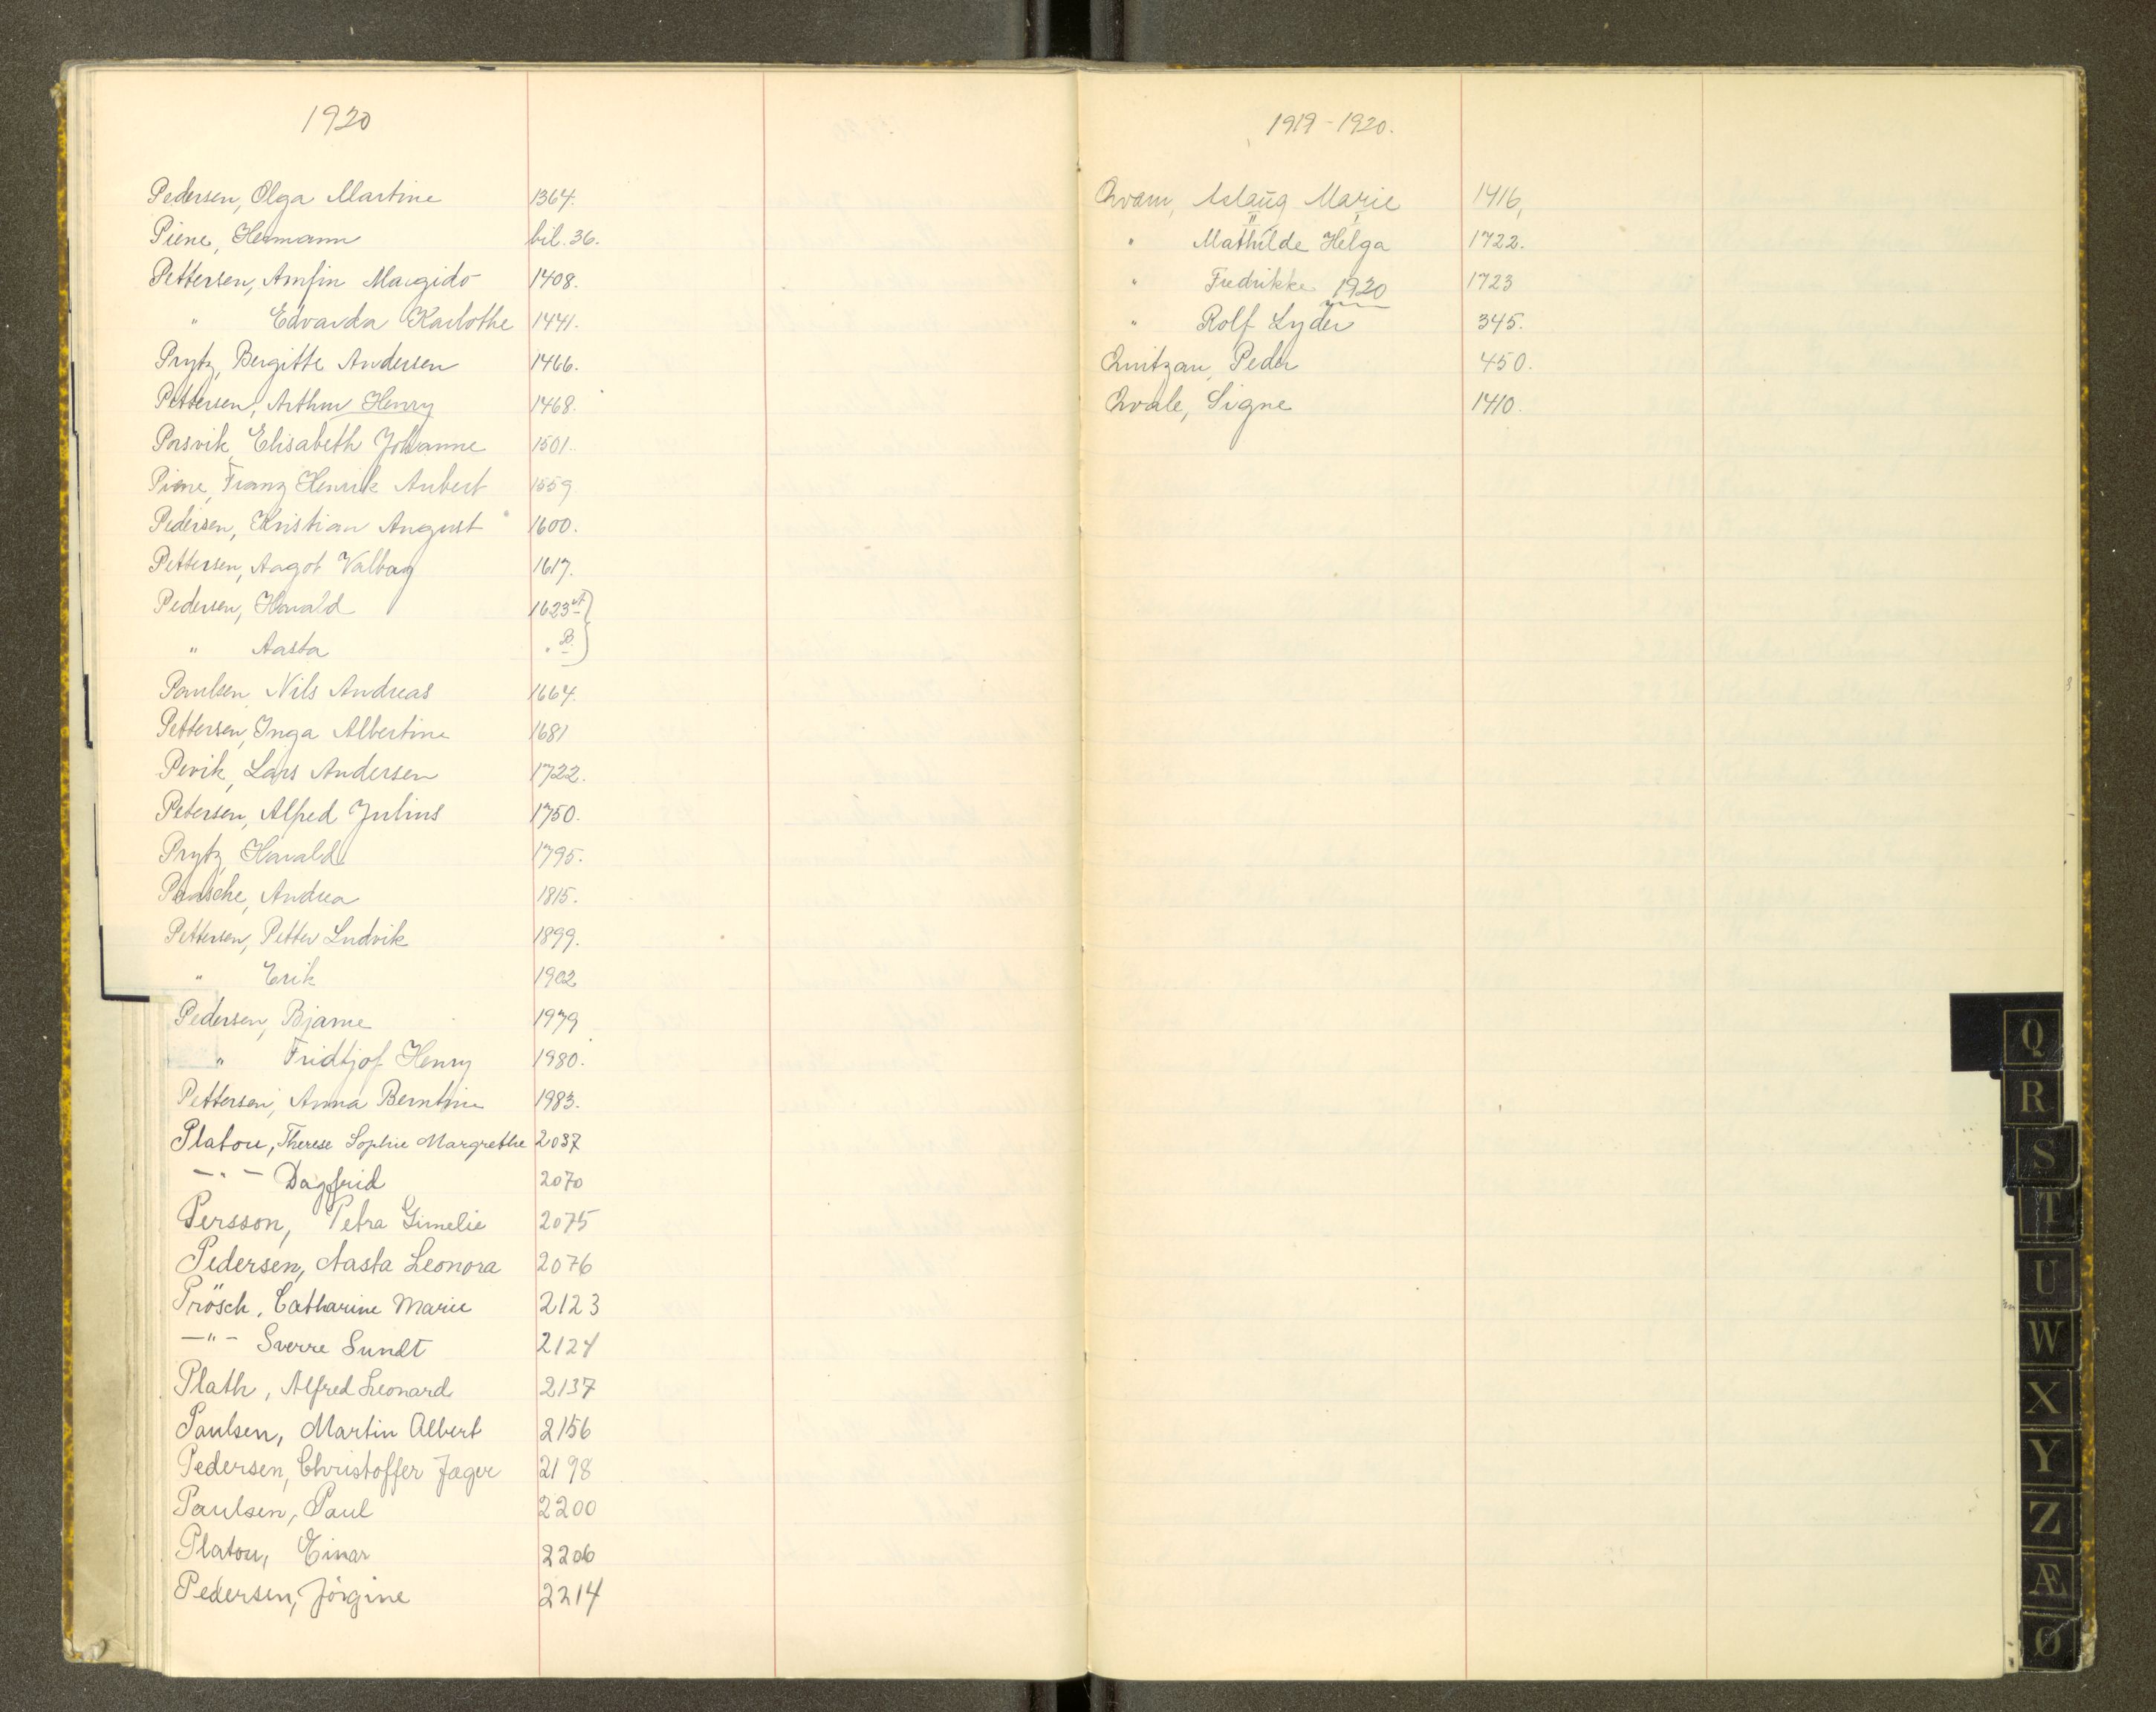 1920
Pedersen, Olga Martine 1364.
Piene, Hermann bil. 36.
Pettersen, Arnfin Margido 1408.
" Edvarda Karlothe 1441.
Prytz, Bergitte Andersen 1466.
Pettersen, Arthur Henry 1468.
Porsvik, Elisabeth Johanne 1501.
Piene, Franz Henrik Aubert 1559
Pedersen, Kristian August 1600.
Pettersen, Aagot Valborg 1617.
Pedersen, Harald 1623 A
" Aasta " B.
Paulsen, Nils Andreas 1664.
Pettersen, Inga Albertine 1681
Pevik, Lars Andersen 1722.
Petersen, Alfred Julius 1750.
Prytz, Harald 1795.
Paasche, Andrea 1815.
Pettersen, Petter Ludvik 1899.
" Erik 1902
Pedersen, Bjarne 1979
" Fridtjof Henry 1980.
Pettersen, Anna Berntine 1983.
Platou, Therese Sophie Margrethe 2037
—"— Dagfrid 2070
Persson, Petra Gimelie 2075
Pedersen, Aasta Leonora 2076
Prösch, Catharine Marie 2123
—"— Sverre Sundt 2124
Plath, Alfred Leonard 2137
Paulsen, Martin Albert 2156
Pedersen, Christoffer Jæger 2198
Paulsen, Paul 2200
Platou, Einar 2206
Pedersen, Jörgine 2214
1919-1920.
Qvam, Aslaug Marie 1416.
" Mathilde Helga 1722.
" Fredrikke 1723
1920
" Rolf Lyder 345.
Quitzau, Peder 450.
Qvale, Signe 1410.
Q
R
S
T
U
W
X
Y
Z
Æ
Ø